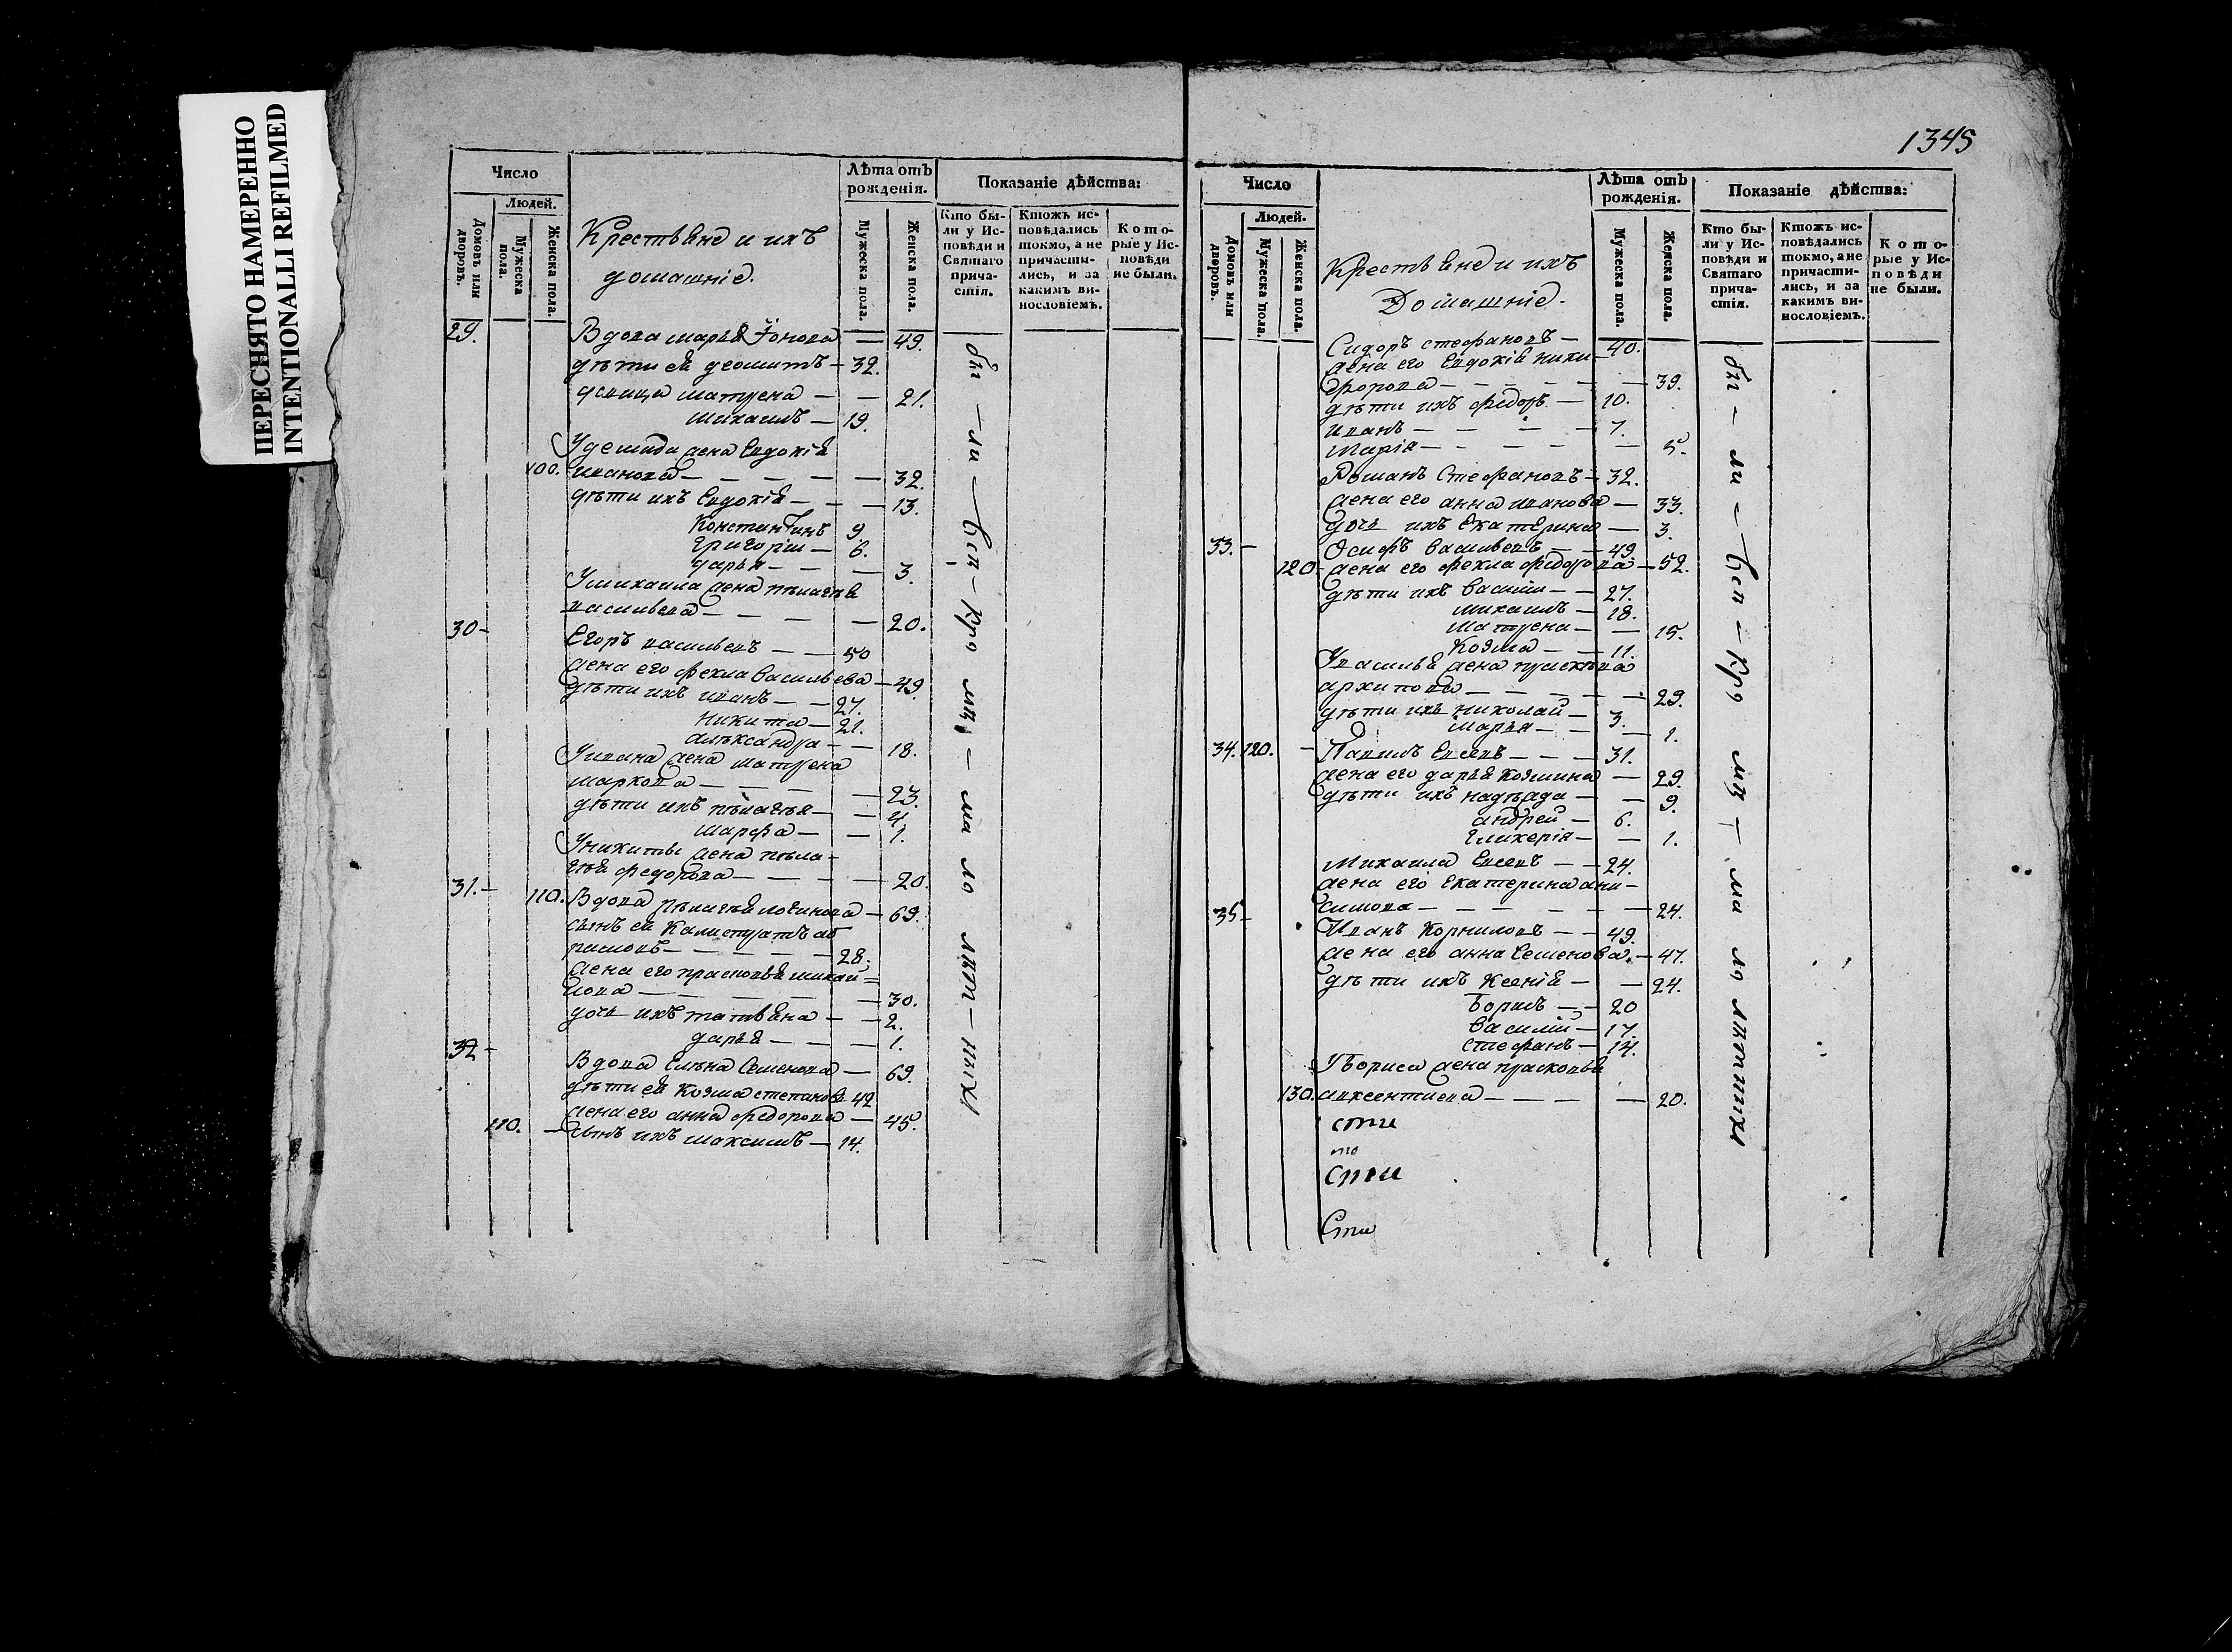 ПЕРЕСНЯТО НАМЕРЕННО
INTENTIONALLI REFILMED
Число
Людей.
Домовъ или дворовъ.
Мужеска пола.
Женска пола.
Крестьяне и ихъ
домашніе.
Лѣта отъ
рожденія.
Мужеска пола.
Женска пола.
Показаніе дѣйства:
Кто бы-
ли у Ис-
повѣди и
Святаго
прича-
стія.
Ктожъ ис-
повѣдались
токмо, а не
причасти-
лись, и за
какимъ ви-
нословіемъ.
Кото-
рые у Ис-
повѣди
не были.
29. Вдова марья Іонова — 49.
дѣти ея демидъ — 32.
девица матрена — — 21.
михаилъ — 19.
У демида жена Евдокія
100. иванова — — — — — 32.
дѣти ихъ Евдокія — — — 13.
Константинъ 9.
григорій — 6.
дарья — — — 3.
У михаила жена пелагея
васильева — — — — 20.
30 — Егоръ васильевъ — — 50
жена его фекла васильева — 49.
дѣти ихъ иванъ — — 27.
никита — 21.
александра — — 18.
У ивана жена матрена
маркова — — — — 23.
дѣти ихъ пелагея — — 4.
марфа — — 1.
У никиты жена пела-
гея федорова — — — — 20.
31. — 110. Вдова пелагея логинова — 69.
сынъ ея Калистратъ аб
расимовъ — — — — 28.
жена его прасковья михай=
лова — — — — — 30.
дочь ихъ татьяна — — 2.
дарья — — — 1.
32 — Вдова Елена Семенова — 69.
дѣти ея Козма степановъ 42
жена его анна федорова — 45.
110. — сынъ ихъ максимъ — 14.
бы — ли — всѣ — кро мѣ — ма ло лѣт — ныхъ
1345
Число
Людей.
Домовъ или дворовъ.
Мужеска пола.
Женска пола.
Крестьяне и ихъ
Домашніе.
Лѣта отъ
рожденія.
Мужеска пола.
Женска пола.
Показаніе дѣйства:
Кто бы-
ли у Ис-
повѣди и
Святаго
прича-
стія.
Ктожъ ис-
повѣдались
токмо, а не
причасти-
лись, и за
какимъ ви-
нословіемъ.
Кото-
рые у Ис-
повѣди
не были.
Сидоръ стефановъ — 40.
жена его Евдокія ники-
форова — — — — — — 39.
дѣти ихъ федоръ — 10.
иванъ — — — — 7.
Марія — — — — — 5.
Романъ Стефановъ — 32.
жена его анна иванова — 33.
дочь ихъ екатерина — 3.
33. — Осифъ васильевъ — — 49.
120. жена его фекла федорова — 52.
дѣти ихъ василій — — 27.
михаилъ — 18.
матрена — — 15.
Козма — — 11.
У василья жена прасковья
архипова — — — — — 29.
дѣти ихъ николай — 3.
марья — — — 1.
34. 120. — Павилъ Евсевъ — — — 31.
жена его дарья козмина — 29.
дѣти ихъ надежда — — 9.
андрей — 6.
гликерія — — 1.
Михаила Евсевъ — — 24.
жена его екатерина ани-
симова — — — — — — 24.
35 — Иванъ Корниловъ — — 49.
жена его анна семенова — 47.
дѣти ихъ Ксенія — — 24.
борисъ — — 20
василій — 17.
стефанъ — 14.
У бориса жена прасковья
130. авксентиева — — — — 20.
сти
сти
Сти
бы — ли — всѣ — кро мѣ — ма ло лѣтныхъ